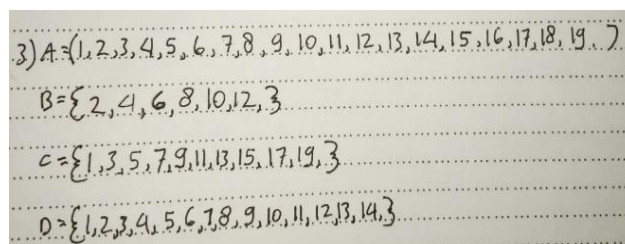 3) A=(1,2,3,4,5,6,7,8,9,10,11,12,13,14,15,16,17,18,19,)
B={2,4,6,8,10,12,}
C={1,3,5,7,9,11,13,15,17,19,}
D={1,2,3,4,5,6,7,8,9,10,11,12,13,14,}